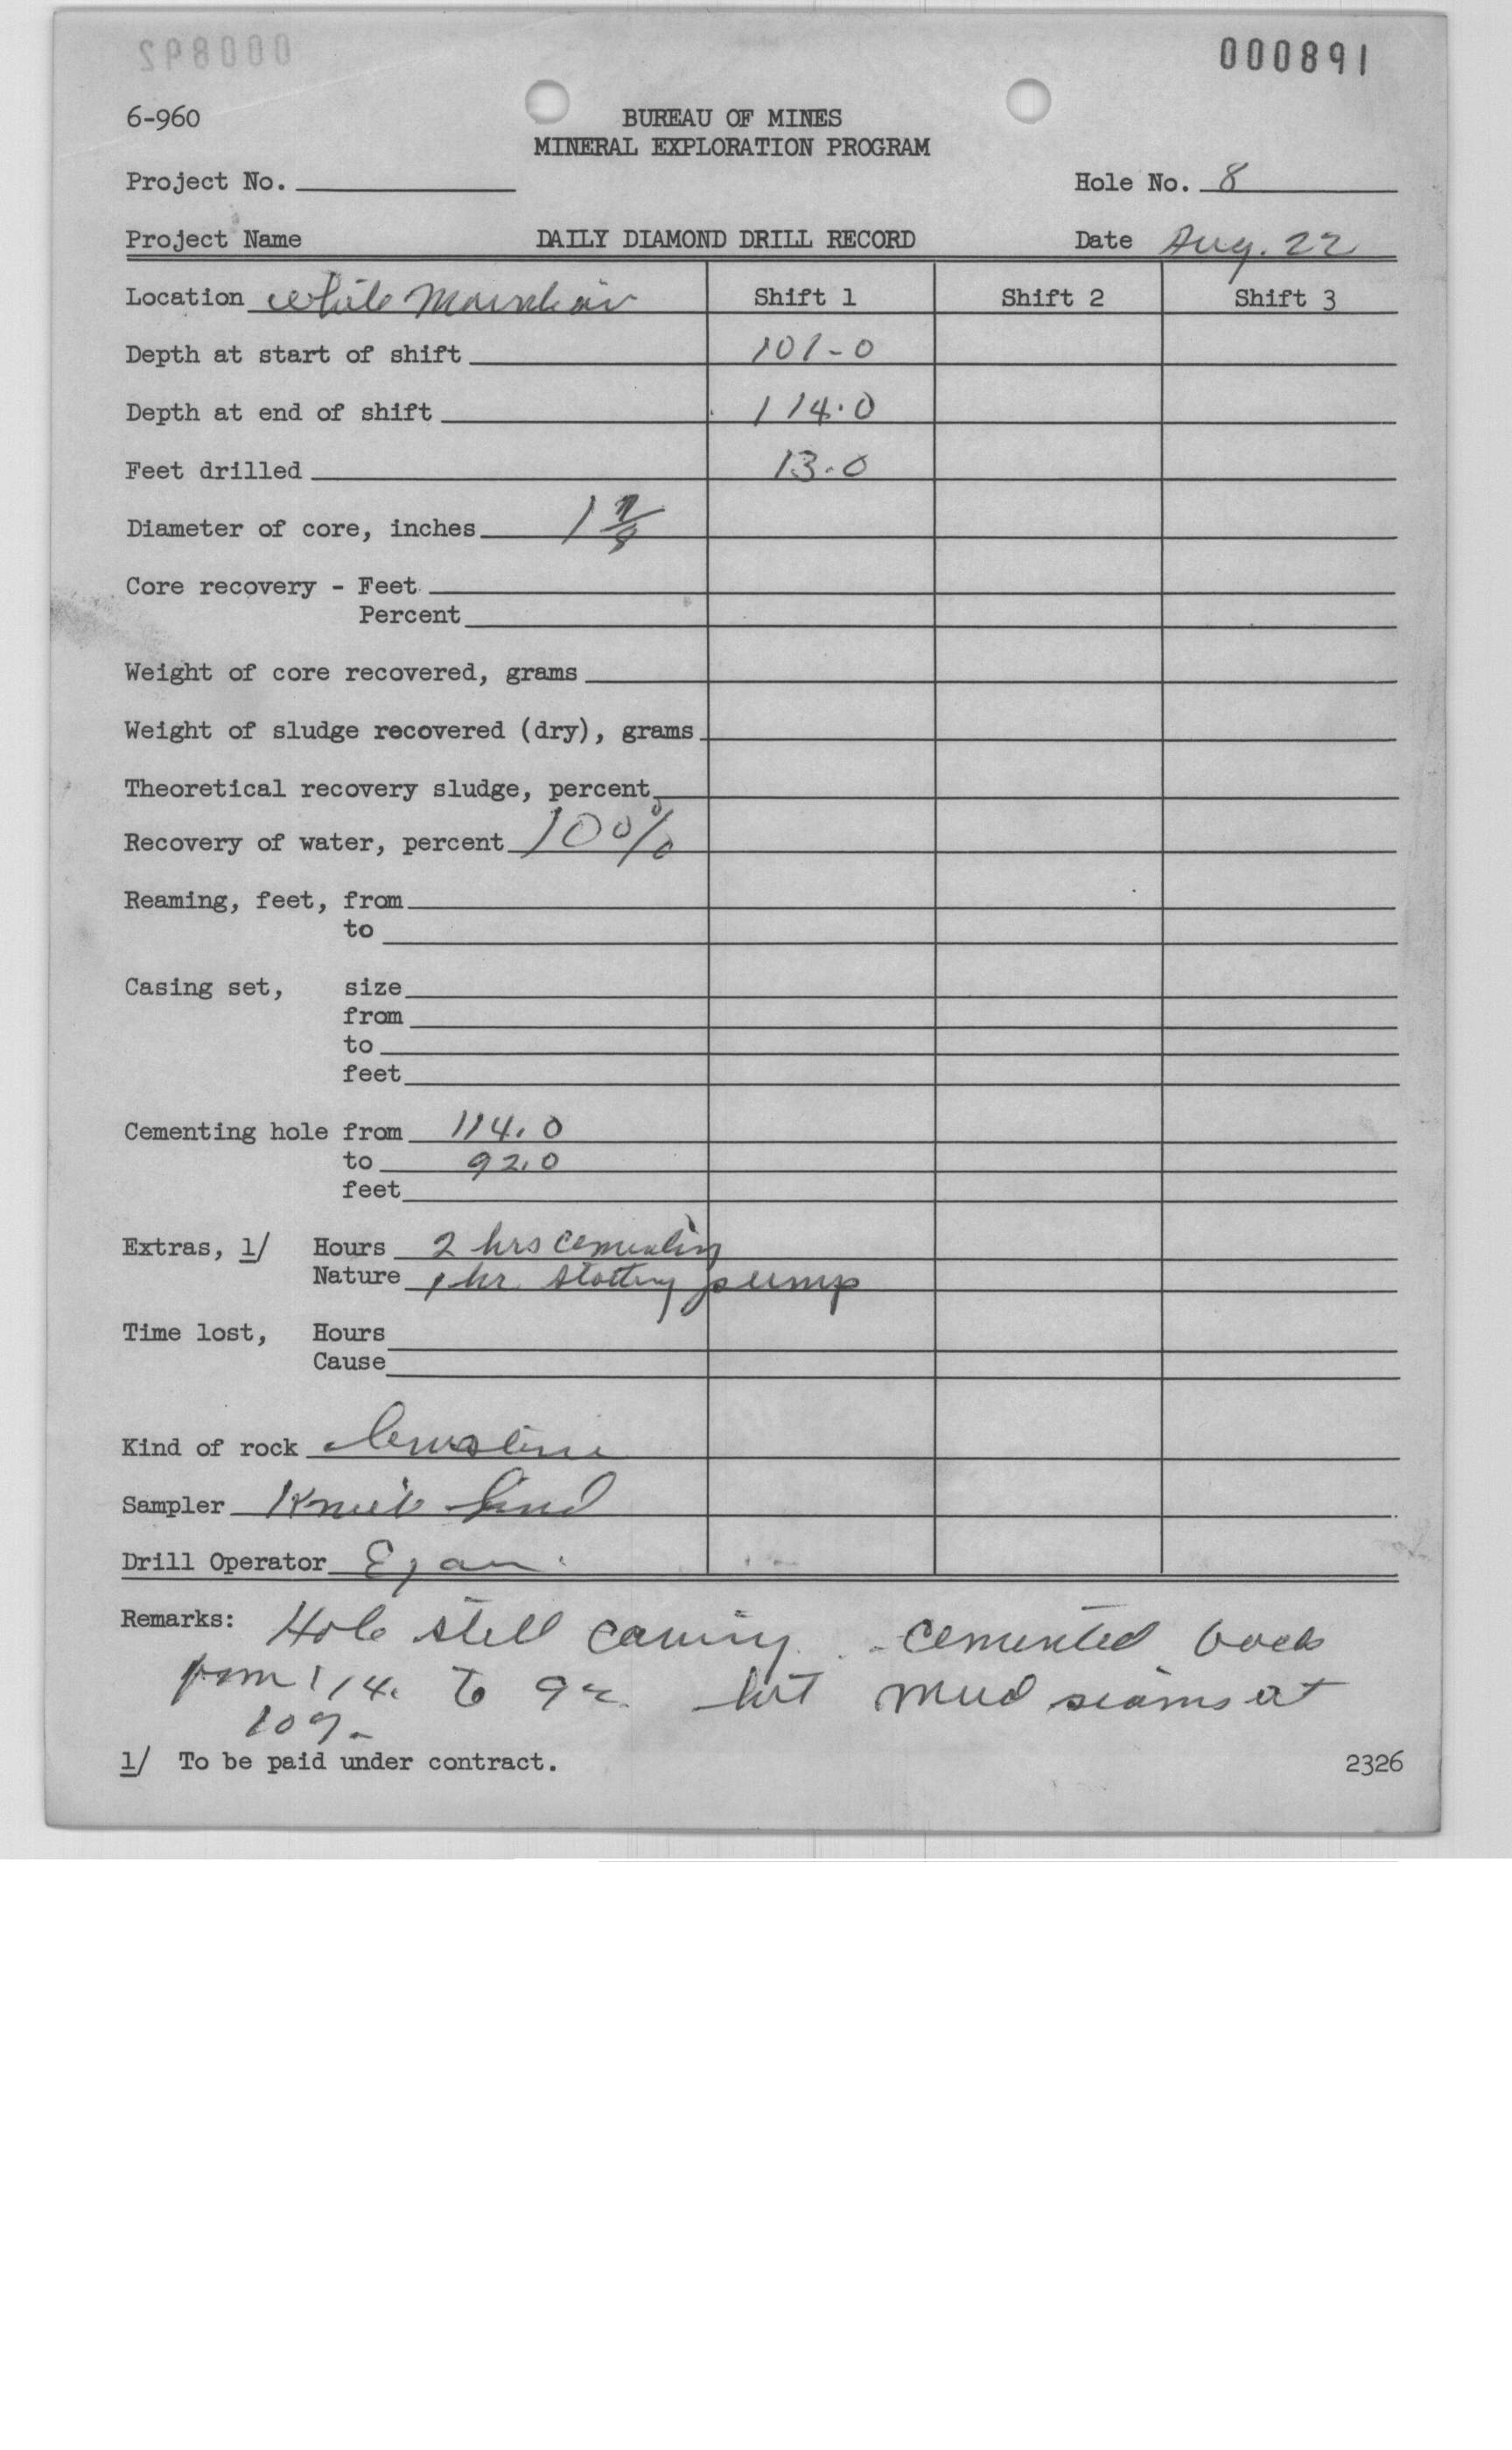 000891
6-960
BUREAU OF MINES
MINERAL EXPLORATION PROGRAM
Project No. Hole No. 8
Project Name DAILY DIAMOND DRILL RECORD Date Aug. 22
Location White Mountain Shift 1 Shift 2 Shift 3
Depth at start of shift 101-0
Depth at end of shift 114.0
Feet drilled 13.0
Diameter of core, inches 1 7/8
Core recovery - Feet
Percent
Weight of core recovered, grams
Weight of sludge recovered (dry), grams
Theoretical recovery sludge, percent
Recovery of water, percent 100%
Reaming, feet, from
to
Casing set, size
from
to
feet
Cementing hole from 114.0
to 92.0
feet
Extras, 1/ Hours 2 hrs cementing
Nature 1 hr. pump
Time lost, Hours
Cause
Kind of rock limestone
Sampler
Drill Operator
Remarks: Hole still caving. cemented back
from 114. to 92. hit mud seams at
109-
1/ To be paid under contract. 2326